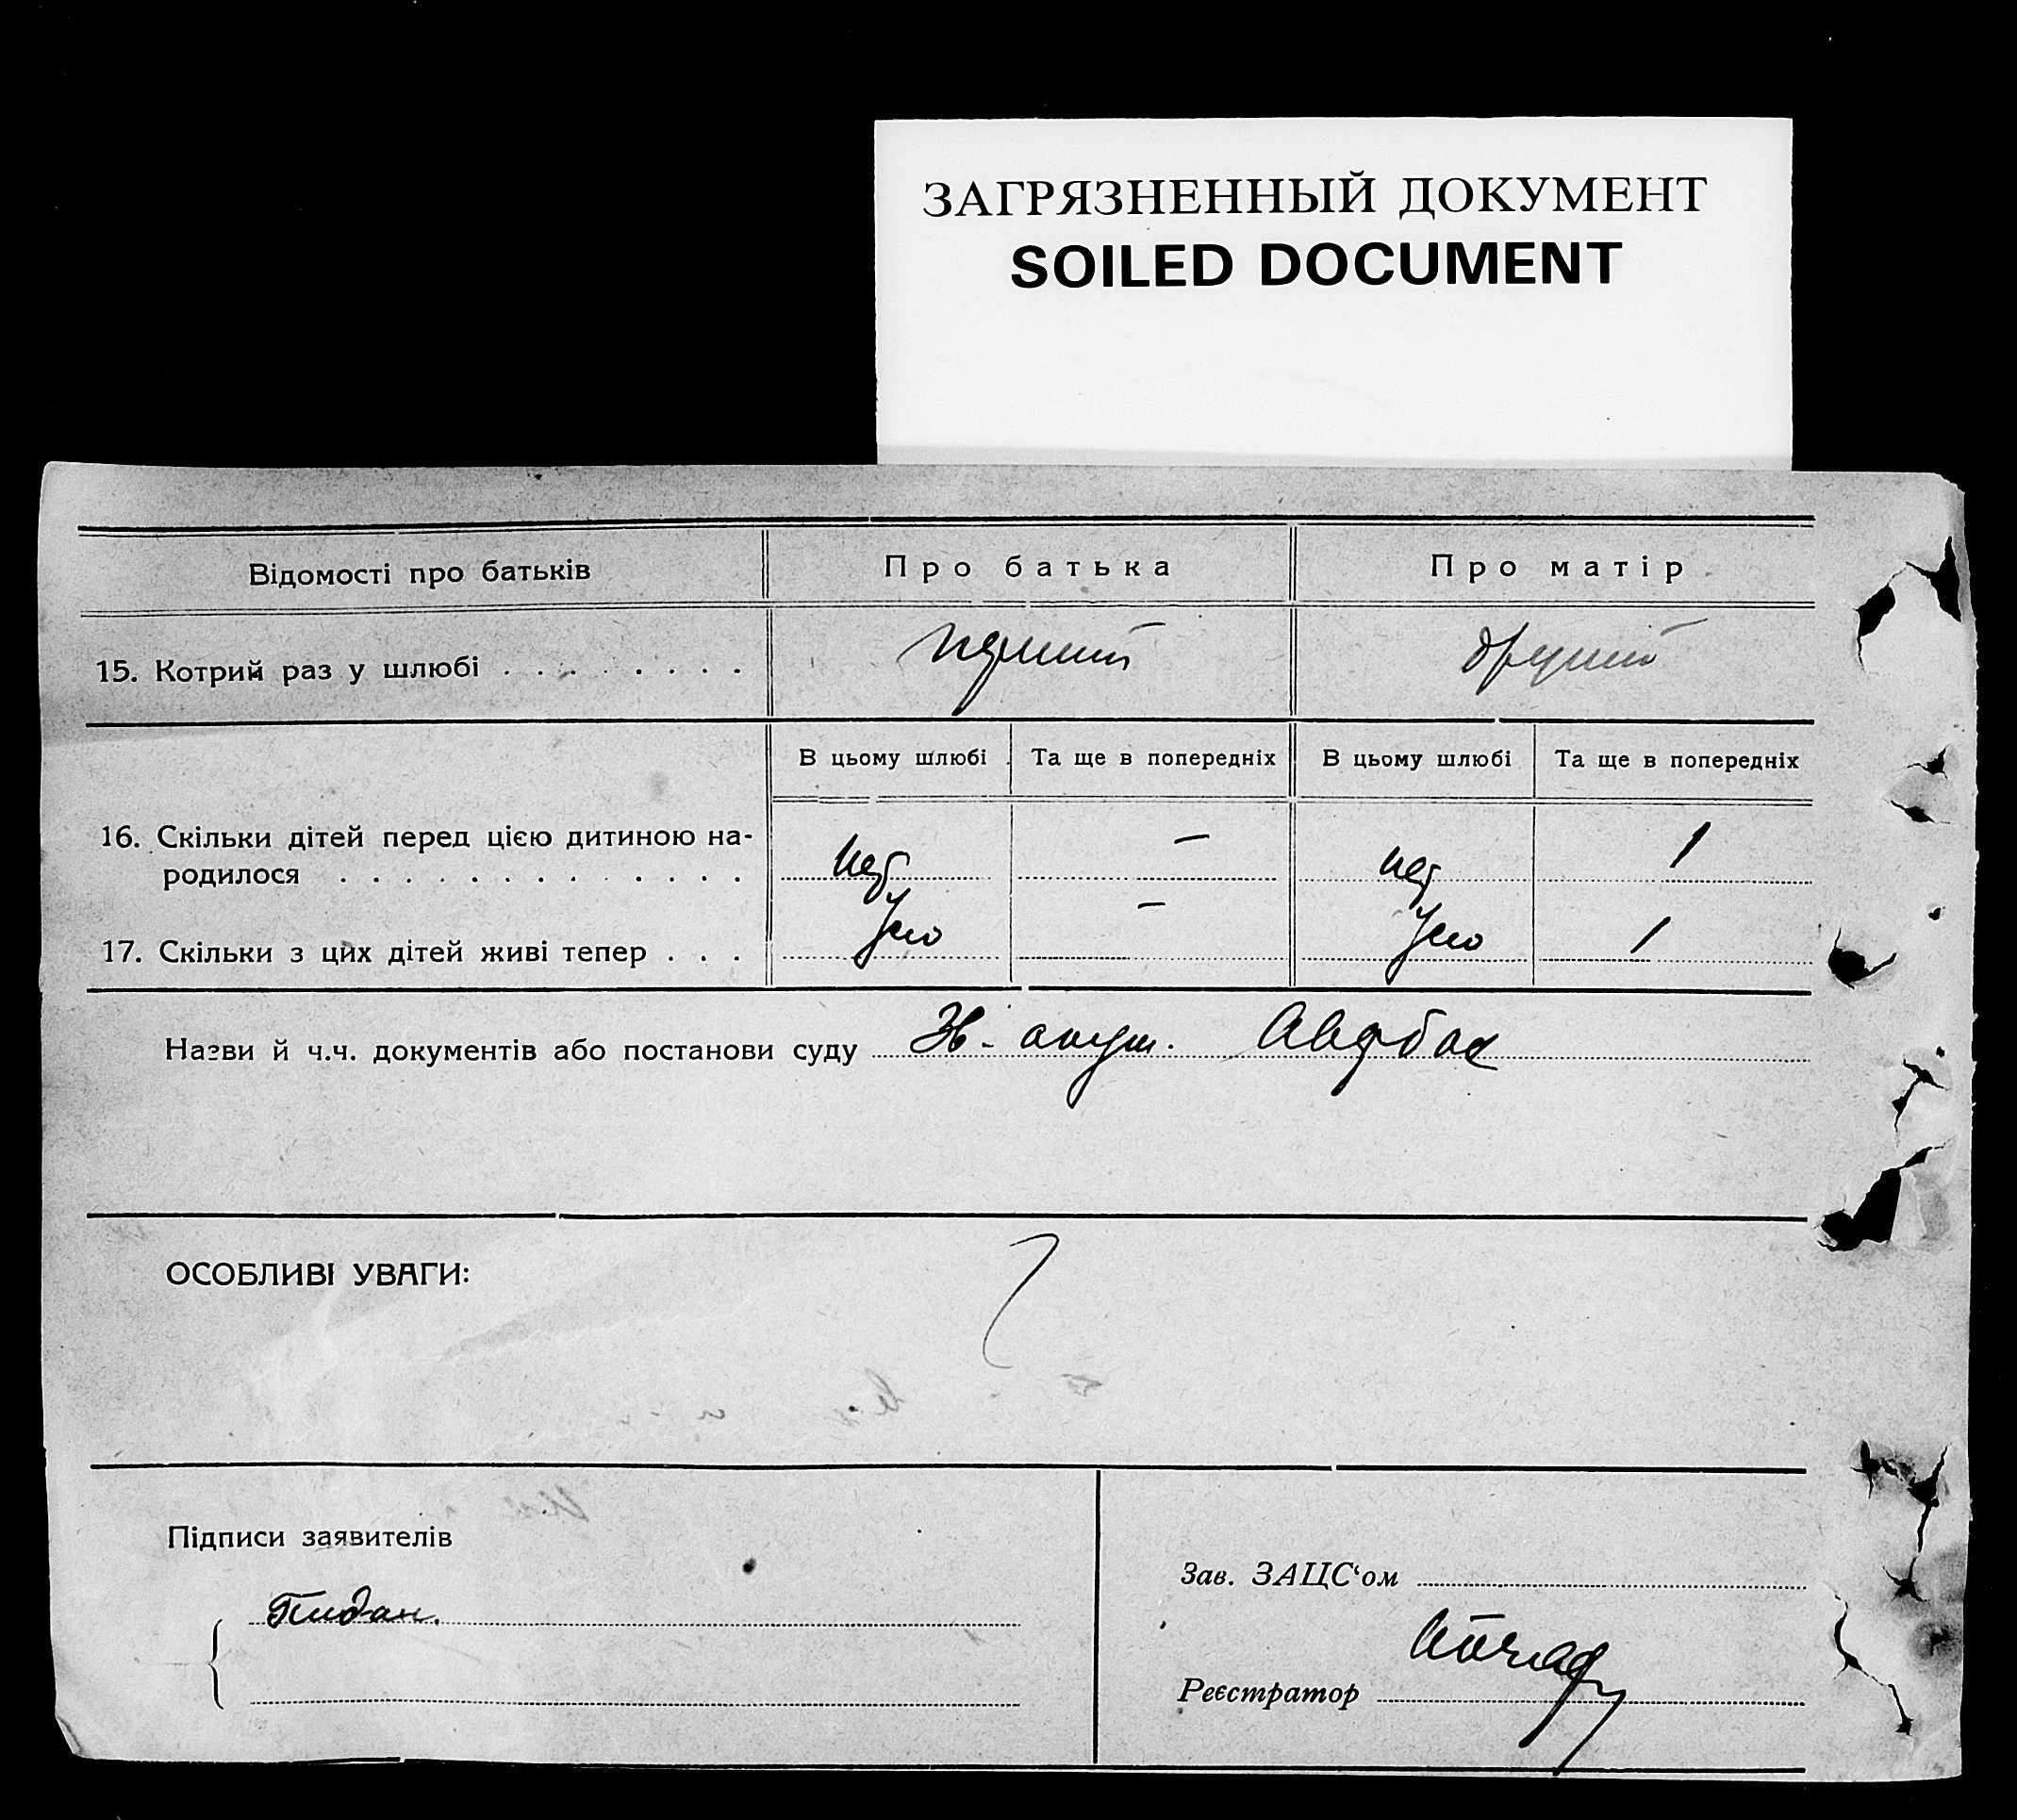 ЗАГРЯЗНЕННЫЙ ДОКУМЕНТ
SOILED DOCUMENT
Відомості про батьків Про батька Про матір
15. Котрий раз у шлюбі . . . . . . . . перший другий
В цьому шлюбі Та ще в попередніх В цьому шлюбі Та ще в попередніх
16. Скільки дітей перед цією дитиною на-
родилося . . . . . . . . . . . . . – 1
17. Скільки з цих дітей живі тепер . . . – 1
Назви й ч.ч. документів або постанови суду акуш. Авербах
ОСОБЛИВІ УВАГИ:
Підписи заявителів
Зав. ЗАЦС‘ом
Реєстратор